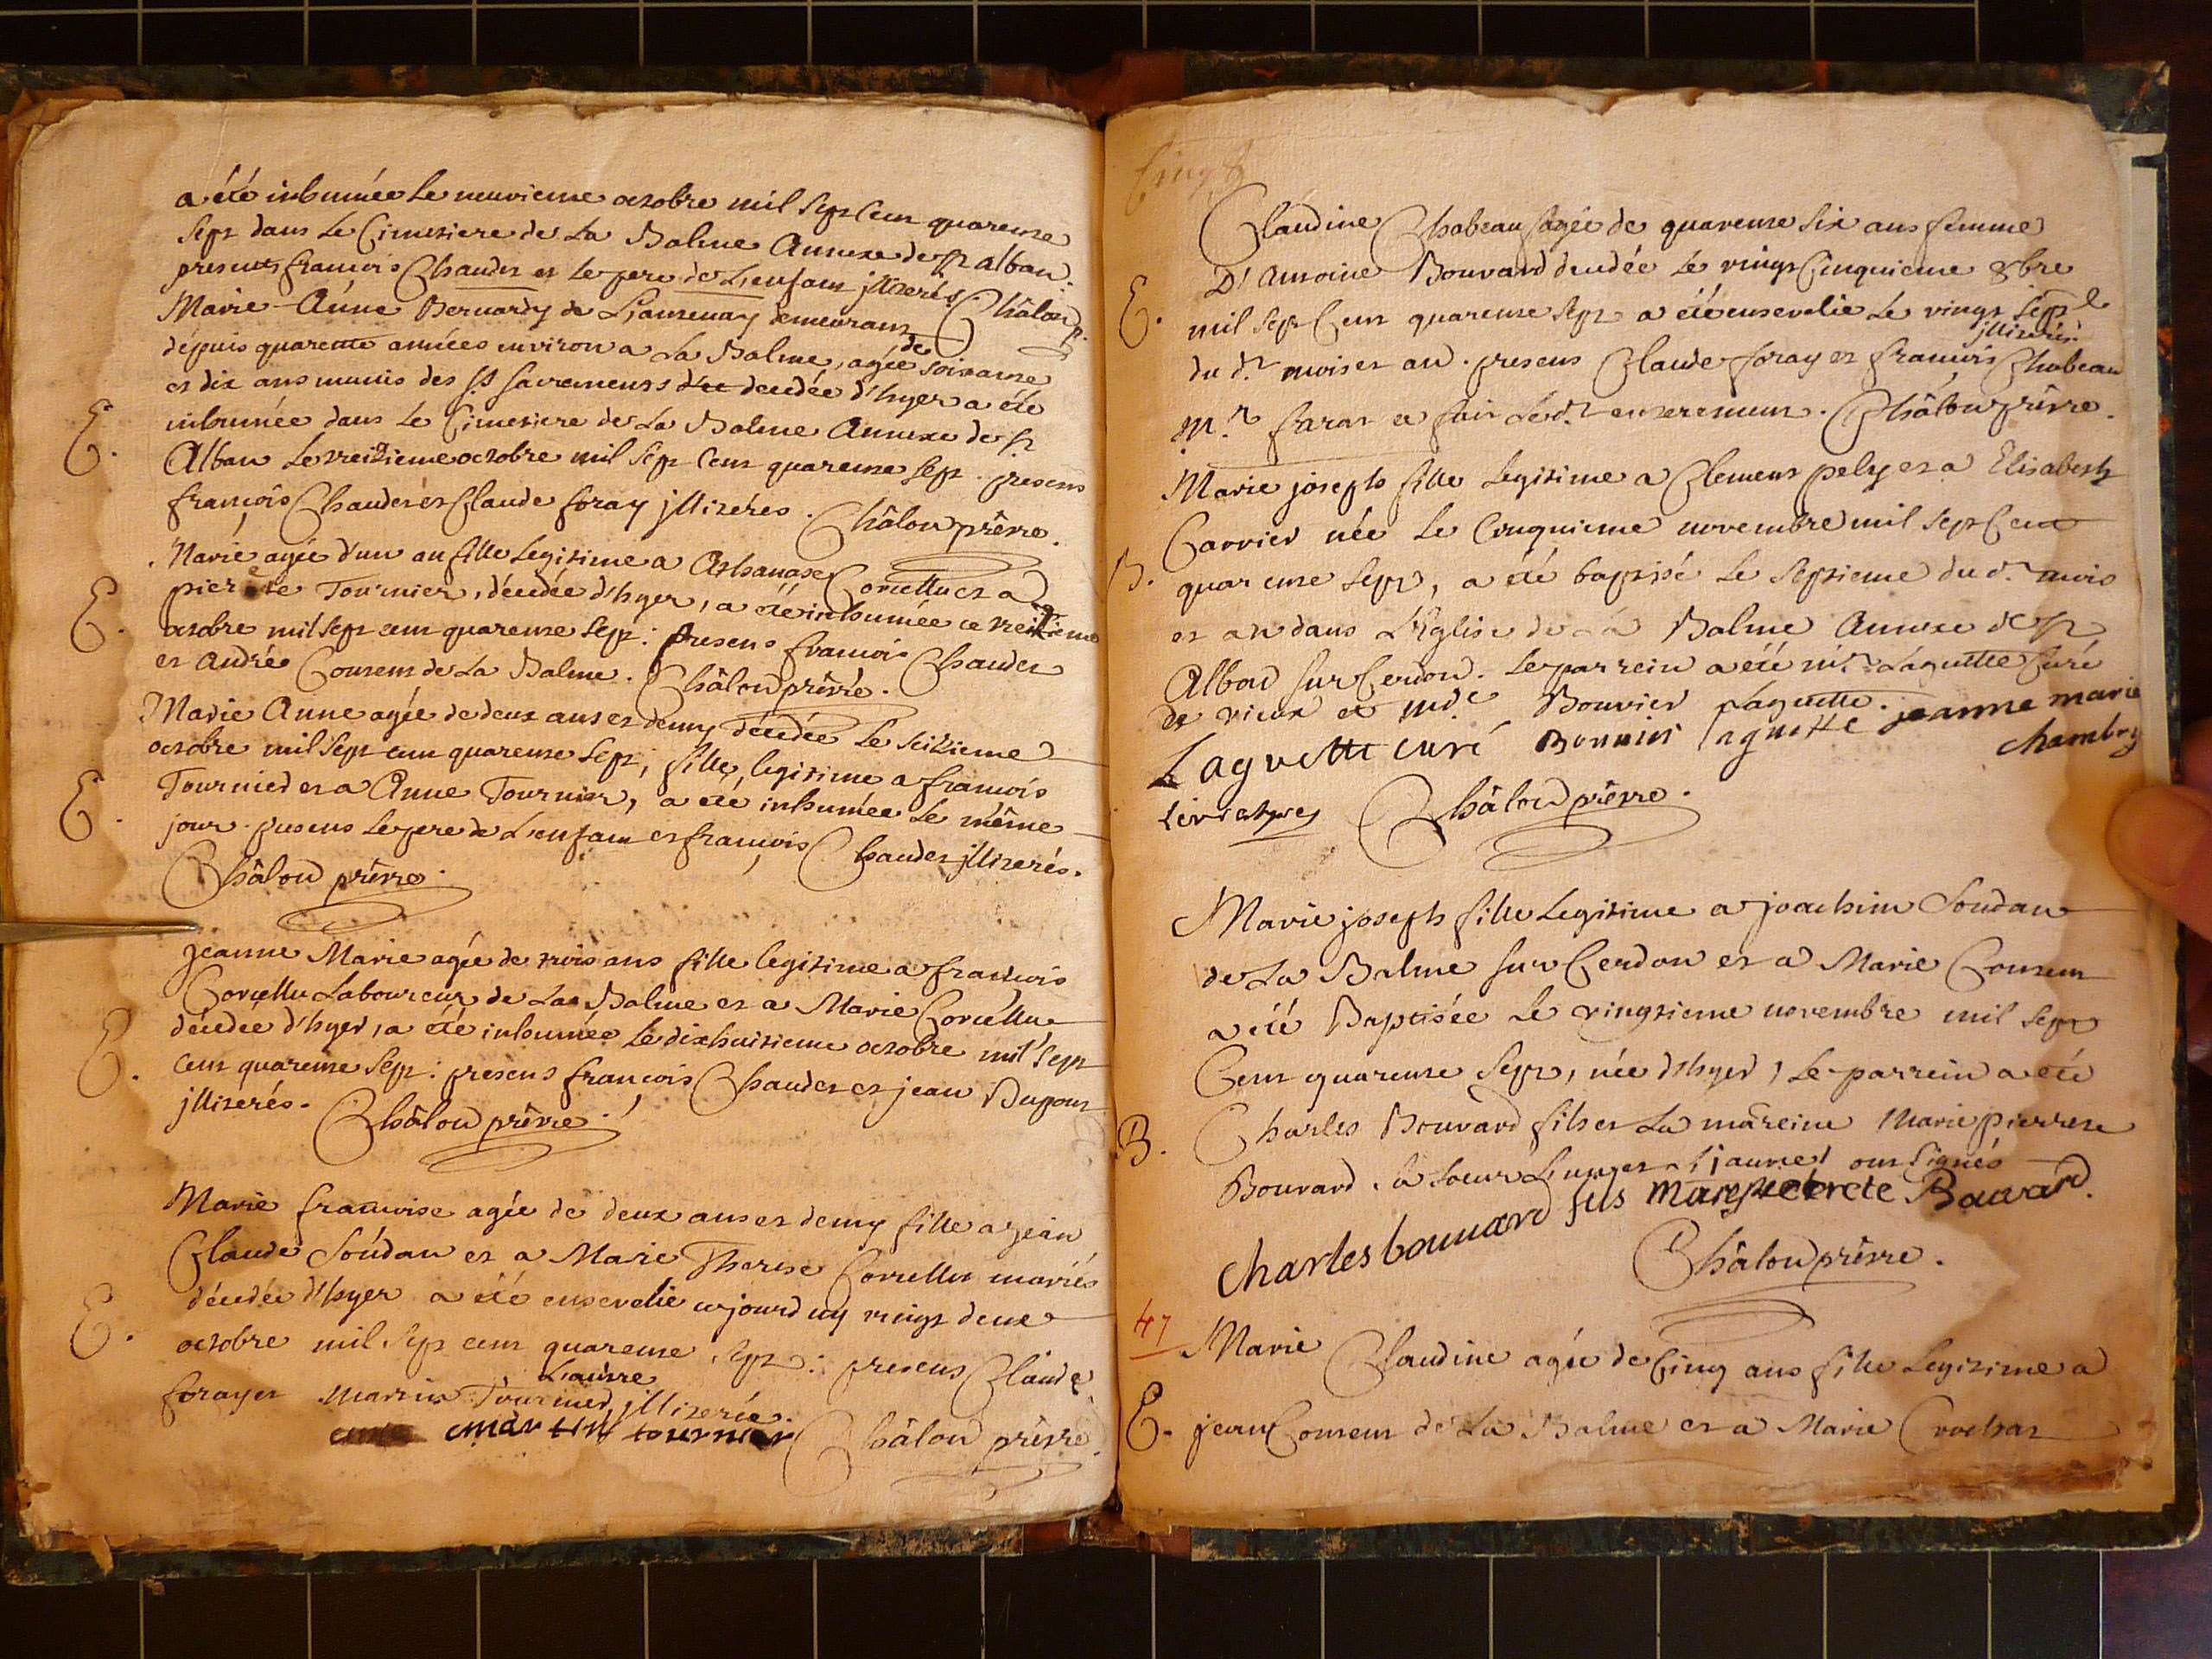 a été inhumée le neuvieme octobre mil sept cent quarente
sept dans le Cimetiere de la Balme Annexe de st alban.
presents françois Chaudet et le pere de L'enfant jlliterés. Châlon p.
Marie-Anne Bernardy de demeurant
dépuis quarente années environ a La Balme, agée de soixante
et dix ans munie des sts sacrements decedée d'hyer a été
inhumée dans le Cimetiere de La Balme Annexe de st
E.
Alban le treizieme octobre mil sept cent quarente sept. presens
françois Chaudet et Claude foray jlliterés. Châlon prêtre.
Marie agée d'un an fille legitime a Athanase Corcellu et a
pierette Tournier, décedée d'hyer, a été inhumée ce treizieme
E.
octobre mil sept cent quarente sept: presens françois Chaudet
et André Consens de La Balme. Châlon prêtre.
Marie Anne agée de deux ans et demy décédée le seizieme
octobre mil sept cent quarente sept, fille legitime a françois
E.
Tournier et a Anne Tournier, a été inhumée le même
jour. presens le pere de L'enfant et françois Chaudet jlliterés.
Châlon prêtre.
jeanne Marie agée de trois ans fille legitime a françois
Corcellu Laboureur de La Balme et a Marie Corcellu
E.
décedée d'hyer, a été inhumée le dixhuitieme octobre mil sept
cent quarente sept: presens françois Chaudet et jean Dupont
jlliterés. Châlon prêtre.
Marie françoise agée de deux ans et demy fille a jean
Claude Soudan et a Marie Therese Corcellu mariés
E.
décedée d'hyer a été ensevelie aujourd'uy vingt deux
octobre mil sept cent quarente sept: presens Claude
foray et martin Tournier L'autre jlliterée.
martin tournier Châlon prêtre.
Claudine Chabeau agée de quarente six ans femme
D'Antoine Bouvard decedée le vingt Cinquieme 8bre
E.
mil sept Cent quarente sept a été ensevelie le vingt sept
du dt mois et an. presens Claude foray et françois Chabeau jlliterés.
mr farat a fait le dt enterement. Châlon prêtre.
Marie joseph fille legitime a Clement pely et a Elisabeth
Carrier née le Cinquieme novembre mil sept Cent
B.
quarente sept, a été baptisé le septieme du dt mois
et an dans L'Eglise de La Balme Annexe de st
Alban sur Cerdon. le parrein a été mr Laguette Curé
de vieux et mde Bouvier Laguette.
Laguette curé Bouvier laguette jeanne marie
chambry
Châlon prêtre.
Marie joseph fille legitime a joachim Soudan
de La Balme sur Cerdon et a Marie Consens
a été Baptisée le vingtieme novembre mil sept
Cent quarente sept, née d'hyer, le parrein a été
B.
Charles Bouvard fils et La mareine Marie pierrete
Bouvard sa soeur L'un et L'autre ont signés
charles bouuard fils marie pieterete Bouvard.
Châlon prêtre.
47
Marie Claudine agée de Cinq ans fille legitime a
E.
jean Consens de La Balme et a Marie Crochat